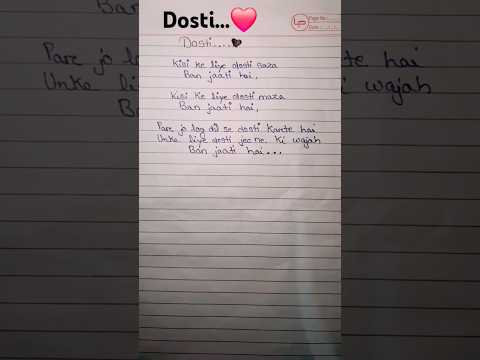 Dosti...❤️
Dosti....
Kisi ke liye dosti saza
Ban jaati hai,
Kisi ke liye dosti maza
Ban jaati hai,
Pare jo log dil se dosti karte hai
Unke liye dosti jeene ki wajah
Ban jaati hai...